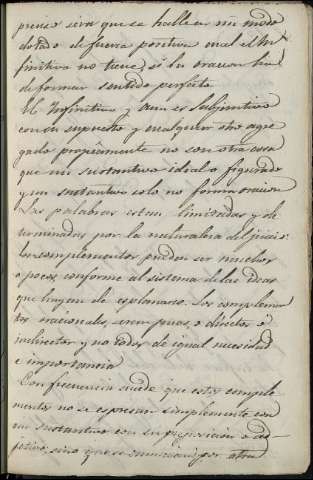 preciso sera que se halle en un modo
dotado de fuerza positiva cual el In-
finitivo no tiene, si la oracion ha
de formar sentido perfecto
El Infinitivo y aun el Subjuntivo
con su supuesto y cualquier otro agre
gado propiamente no son otra cosa
que un sustantivo ideal o figurado
y un sustantivo solo no forma oracion
Las palabras estan limitadas y de
terminadas por la naturaleza del juicio:
los complementos pueden ser muchos
o pocos, conforme al sistema de las ideas
que hayan de esplanarse. Los complemen
tos oracionales, seran pues, o directos o
indirectos y no todos de igual necesidad
e importancia
Con frecuencia sucede que estos comple
mentos no se espresan simplemente con
un sustantivo con su preposicion o ad-
jetivo, sino que se enuncian por otra